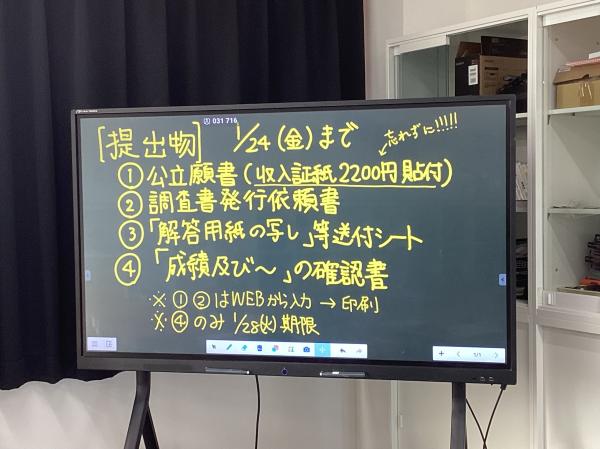 031 716
[提出物] 1/24(金)まで
忘れずに!!!!!
① 公立願書(収入証紙2200円貼付)
② 調査書発行依頼書
③「解答用紙の写し」等送付シート
④「成績及び〜」の確認書
※①②はWEBから入力→印刷
※④のみ 1/28(火)期限
1/1